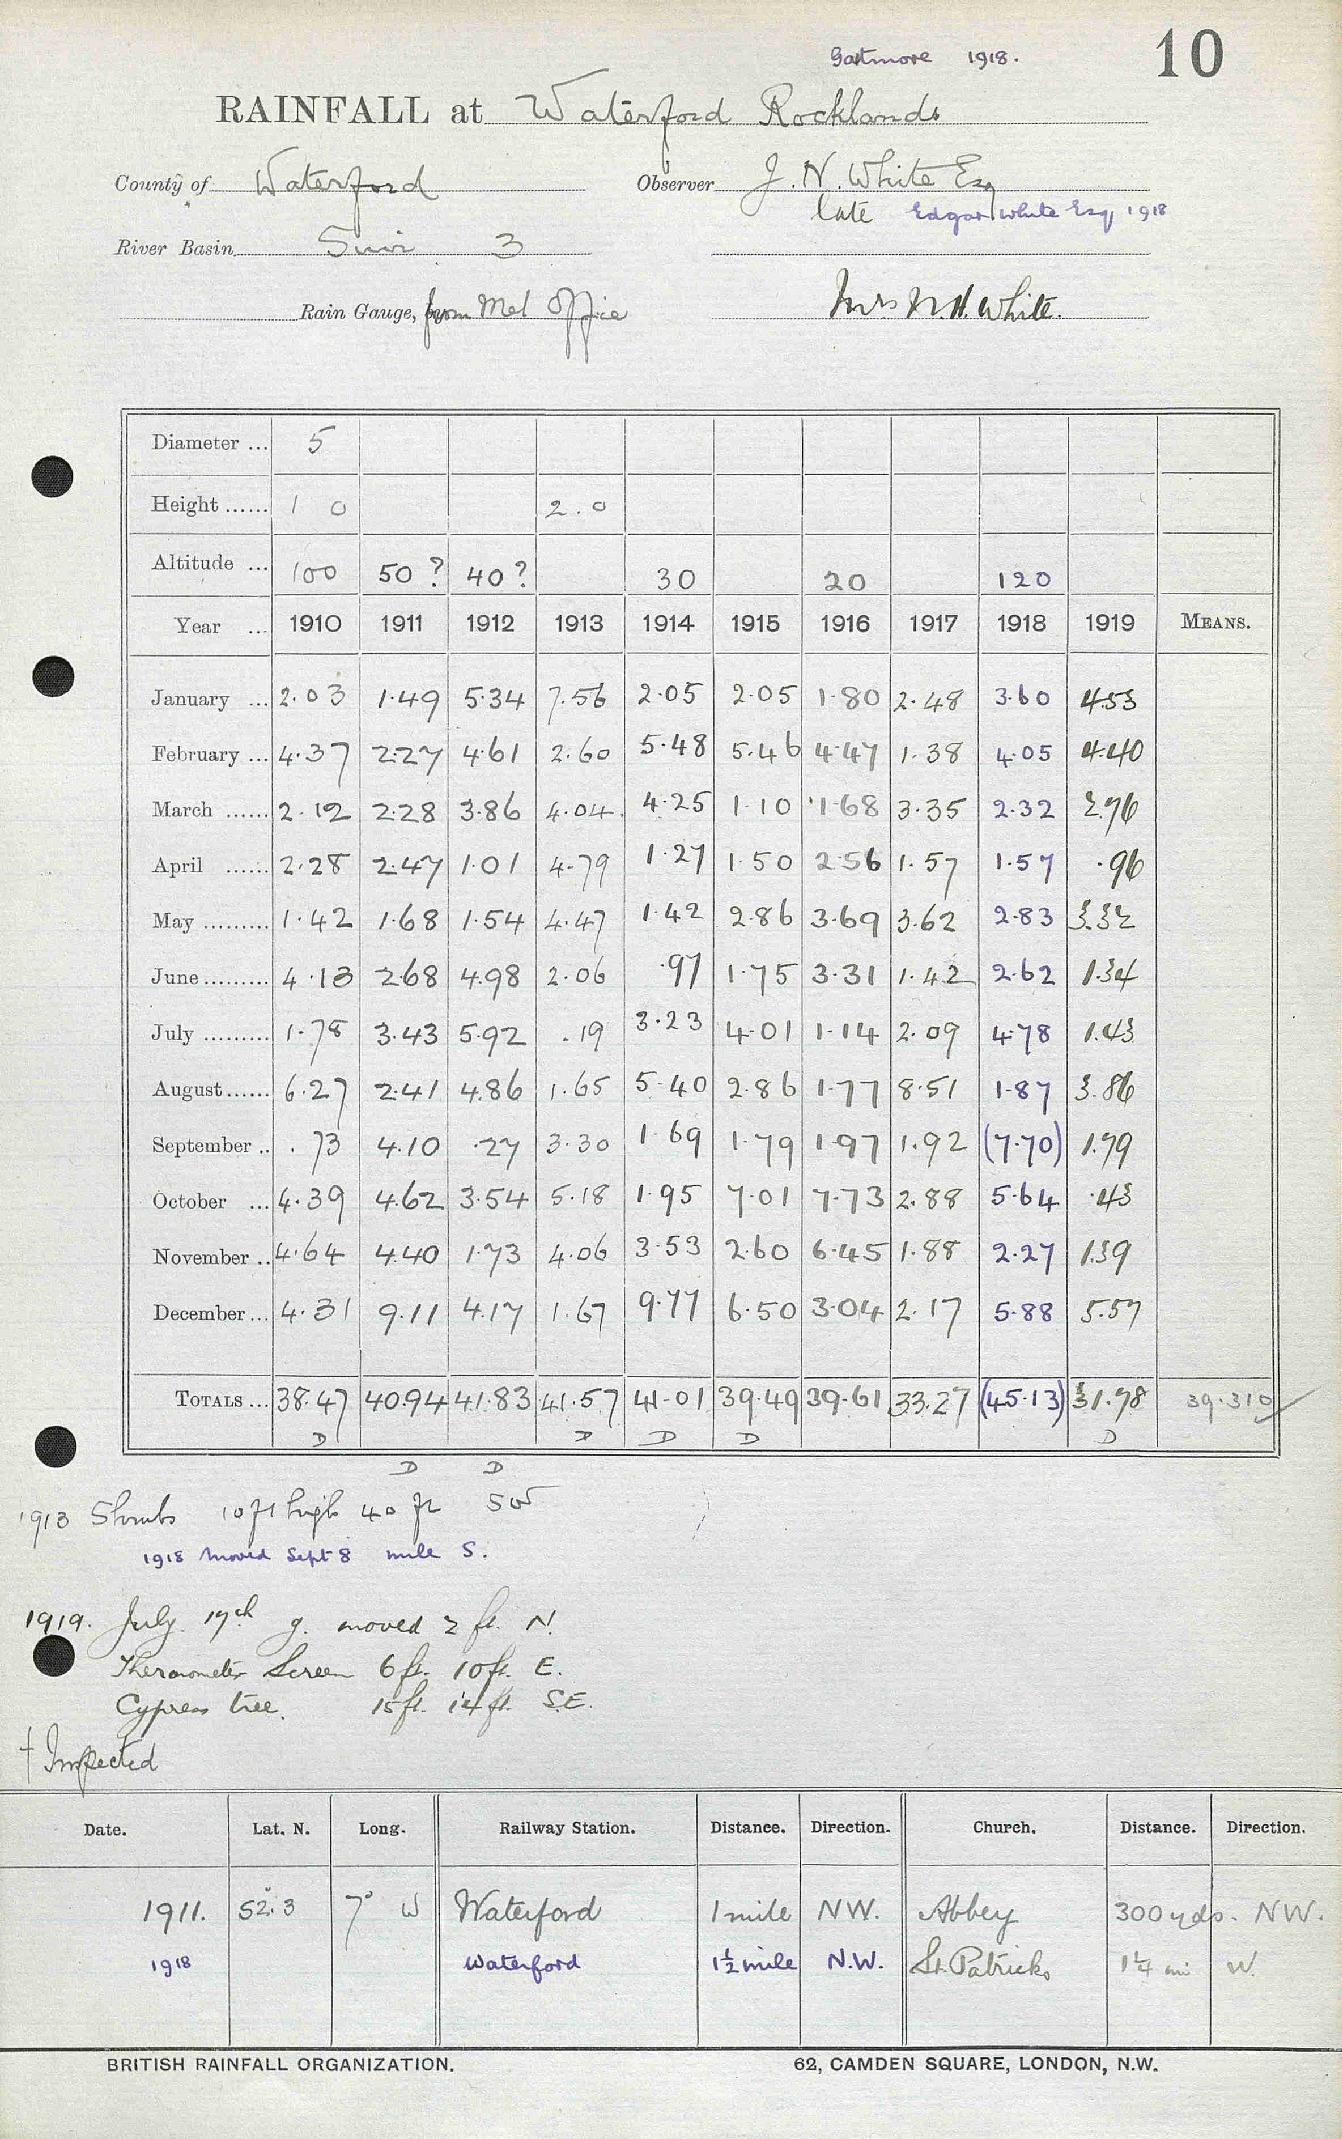 Gortmore 1918.
10
RAINFALL at Waterford Rocklands
County of Waterford Observer J. N. White Esq
late Edgar White Esq 1918
River Basin Suir 3
Rain Gauge, from Met Office Mrs N. H. White.
Diameter ... 5
Height ...... 1 0 2.0
Altitude ... 100 50? 40? 30 20 120
Year ... 1910 1911 1912 1913 1914 1915 1916 1917 1918 1919 MEANS.
January ... 2.03 1.49 5.34 7.56 2.05 2.05 1.80 2.48 3.60 4.53
February ... 4.37 2.27 4.61 2.60 5.48 5.46 4.47 1.38 4.05 4.40
March ...... 2.12 2.28 3.86 4.04 4.25 1.10 1.68 3.35 2.32 2.96
April ...... 2.28 2.47 1.01 4.79 1.27 1.50 2.56 1.57 1.57 .96
May ......... 1.42 1.68 1.54 4.47 1.42 2.86 3.69 3.62 2.83 3.32
June ......... 4.13 2.68 4.98 2.06 .97 1.75 3.31 1.42 2.62 1.34
July ......... 1.78 3.43 5.92 .19 3.23 4.01 1.14 2.09 4.78 1.43
August ...... 6.27 2.41 4.86 1.65 5.40 2.86 1.77 8.51 1.87 3.86
September .. .73 4.10 .27 3.30 1.69 1.79 1.97 1.92 (7.70) 1.79
October ... 4.39 4.62 3.54 5.18 1.95 7.01 7.73 2.88 5.64 .43
November .. 4.64 4.40 1.73 4.06 3.53 2.60 6.45 1.88 2.27 1.39
December ... 4.31 9.11 4.17 1.67 9.77 6.50 3.04 2.17 5.88 5.57
TOTALS ... 38.47 40.94 41.83 41.57 41.01 39.49 39.61 33.27 (45.13) 31.98 39.310
D D D D D
D D
1913 Shrubs 10 ft high 40 ft SW
1918 Moved Sept 8 mile S.
1919. July 17th g. moved 2 ft. N.
Thermometer Screen 6 ft. 10 ft. E.
Cypress tree. 15 ft. 14 ft. S.E.
† Inspected
Date. Lat. N. Long. Railway Station. Distance. Direction. Church. Distance. Direction.
1911. 52°.3 7° W Waterford 1 mile NW. Abbey 300 yds. NW.
1918 Waterford 1½ mile N.W. St. Patricks 1¼ mi W.
BRITISH RAINFALL ORGANIZATION. 62, CAMDEN SQUARE, LONDON, N.W.